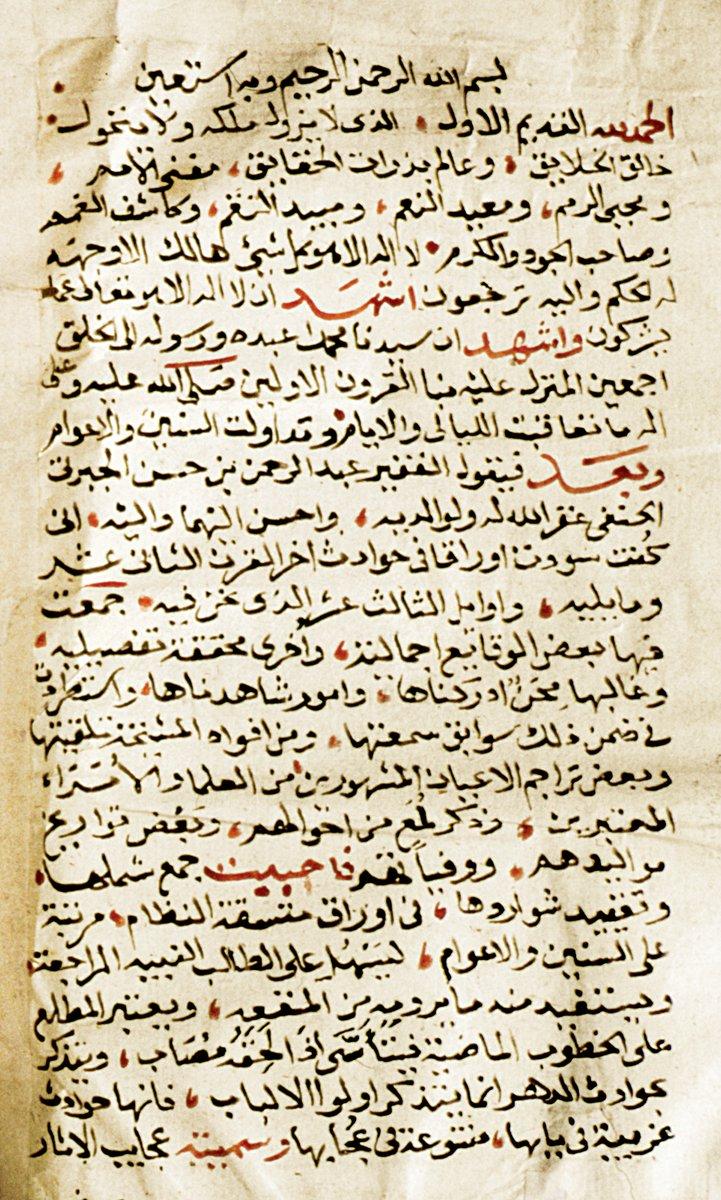 بسم الله الرحمن الرحيم وبه استعين
الحمد لله القديم الاول الذى لا يزول ملكه ولا يتحول
خالق الخلايق وعالم بذرات الحقايق مفنى الامم
ومحيى الرمم ومعيد النعم ومبيد النقم وكاشف الغمم
وصاحب الجود والكرم لا اله الا هو كل شيئ هالك الا وجهه
له الحكم واليه ترجعون اشهد ان لا اله الا هو تعالى عما
يشركون واشهد ان سيدنا محمدا عبده ورسوله الى الخلق
اجمعين المنزل عليه نبا القرون الاولين صلى الله عليه وعلى
اله ما تعاقبت الليالى والايام وتداولت السنين والاعوام
وبعد فيقول الفقير عبد الرحمن بن حسن الجبرتى
الحنفى غفر الله له ولوالديه واحسن اليهما واليه انى
كنت سودت اوراقا فى حوادث اخر القرن الثانى عشر
وما يليه واوايل الثالث عشر الذى نحن فيه جمعت
فيها بعض الوقايع اجمالية واخرى محققة تفصيليه
وغالبها محن ادركناها وامور شاهدناها واستطردت
فى ضمن ذلك سوابق سمعتها ومن افواه المشيخة تلقيتها
وبعض تراجم الاعيان المشهورين من العلما والامراء
المعتبرين وذكر لمع من اخوالهم وبعض تواريخ
مواليدهم ووفياتهم فاحببت جمع شملها
وتقييد شواردها فى اوراق متسقة النظام مرتبة
على السنين والاعوام ليسهل على الطالب النبيه المراجعة
ويستفيد منه ما يرومه من المنفعه ويعتبر المطلع
على الخطوب الماضية فيتأسى اذا لحقه مصاب ويتذكر
بحوادث الدهر انما يتذكر اولوا الالباب فانها حوادث
غريبة فى بابها متنوعة فى عجايبها وسميته عجايب الاثار